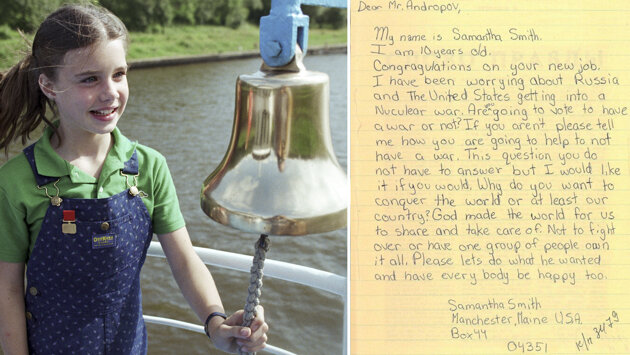 Dear Mr. Andropov,
My name is Samantha Smith.
I am 10 years old.
Congragulations on your new job.
I have been worrying about Russia
and The United States getting into a
Nuculear war. Are you going to vote to have
a war or not? If you aren't please tell
me how you are going to help to not
have a war. This question you do
not have to answer but I would like
it if you would. Why do you want to
conquer the world or at least our
country? God made the world for us
to share and take care of. Not to fight
over or have one group of people own
it all. Please lets do what he wanted
and have every body be happy too.
Samantha Smith
Manchester, Maine USA.
Box 44
04351